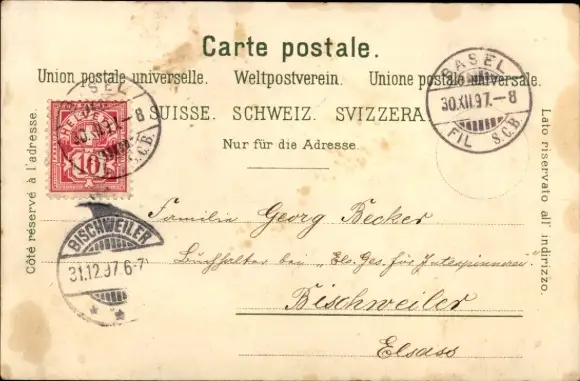 Carte postale.
Union postale universelle. Weltpostverein. Unione postale universale.
SUISSE. SCHWEIZ. SVIZZERA.
Nur für die Adresse.
Côté réservé à l'adresse.
Lato riservato all' indirizzo.
HELVETIA
10
BASEL
30.XII.97.-8
FIL S.C.B.
BASEL
30.XII.97.-8
S.C.B.
BISCHWEILER
31.12.97.6-7
Familie Georg Becker
Buchhalter bei "Els. Ges. für
Bischweiler
Elsass